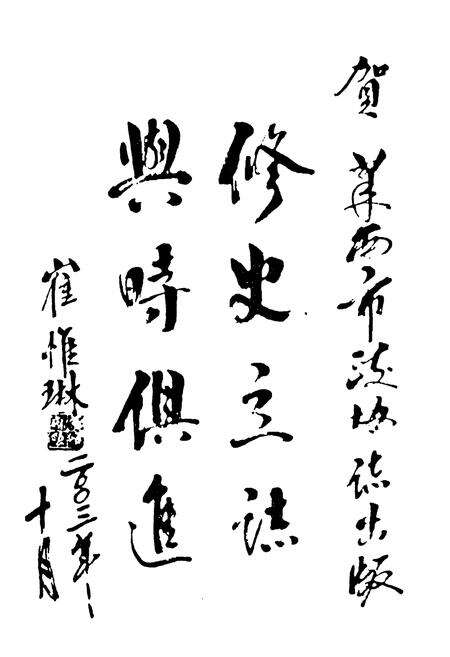 賀 莱西市政協誌出版
修史立誌
與時俱進
崔惟琳
二〇〇三年
十月